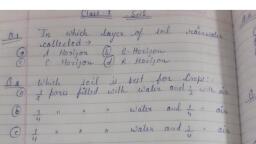 Class - 7 Soil
Q.1 In which layer of soil rainwater
collected →
(a) A Horizon (b) B-Horizon
(c) C Horizon (d) R Horizon
Q.2 Which soil is best for crops:-
(a) pores filled with water and air
(b) 1/4 " " " water and " air
(c) 1/4 " " " water and air